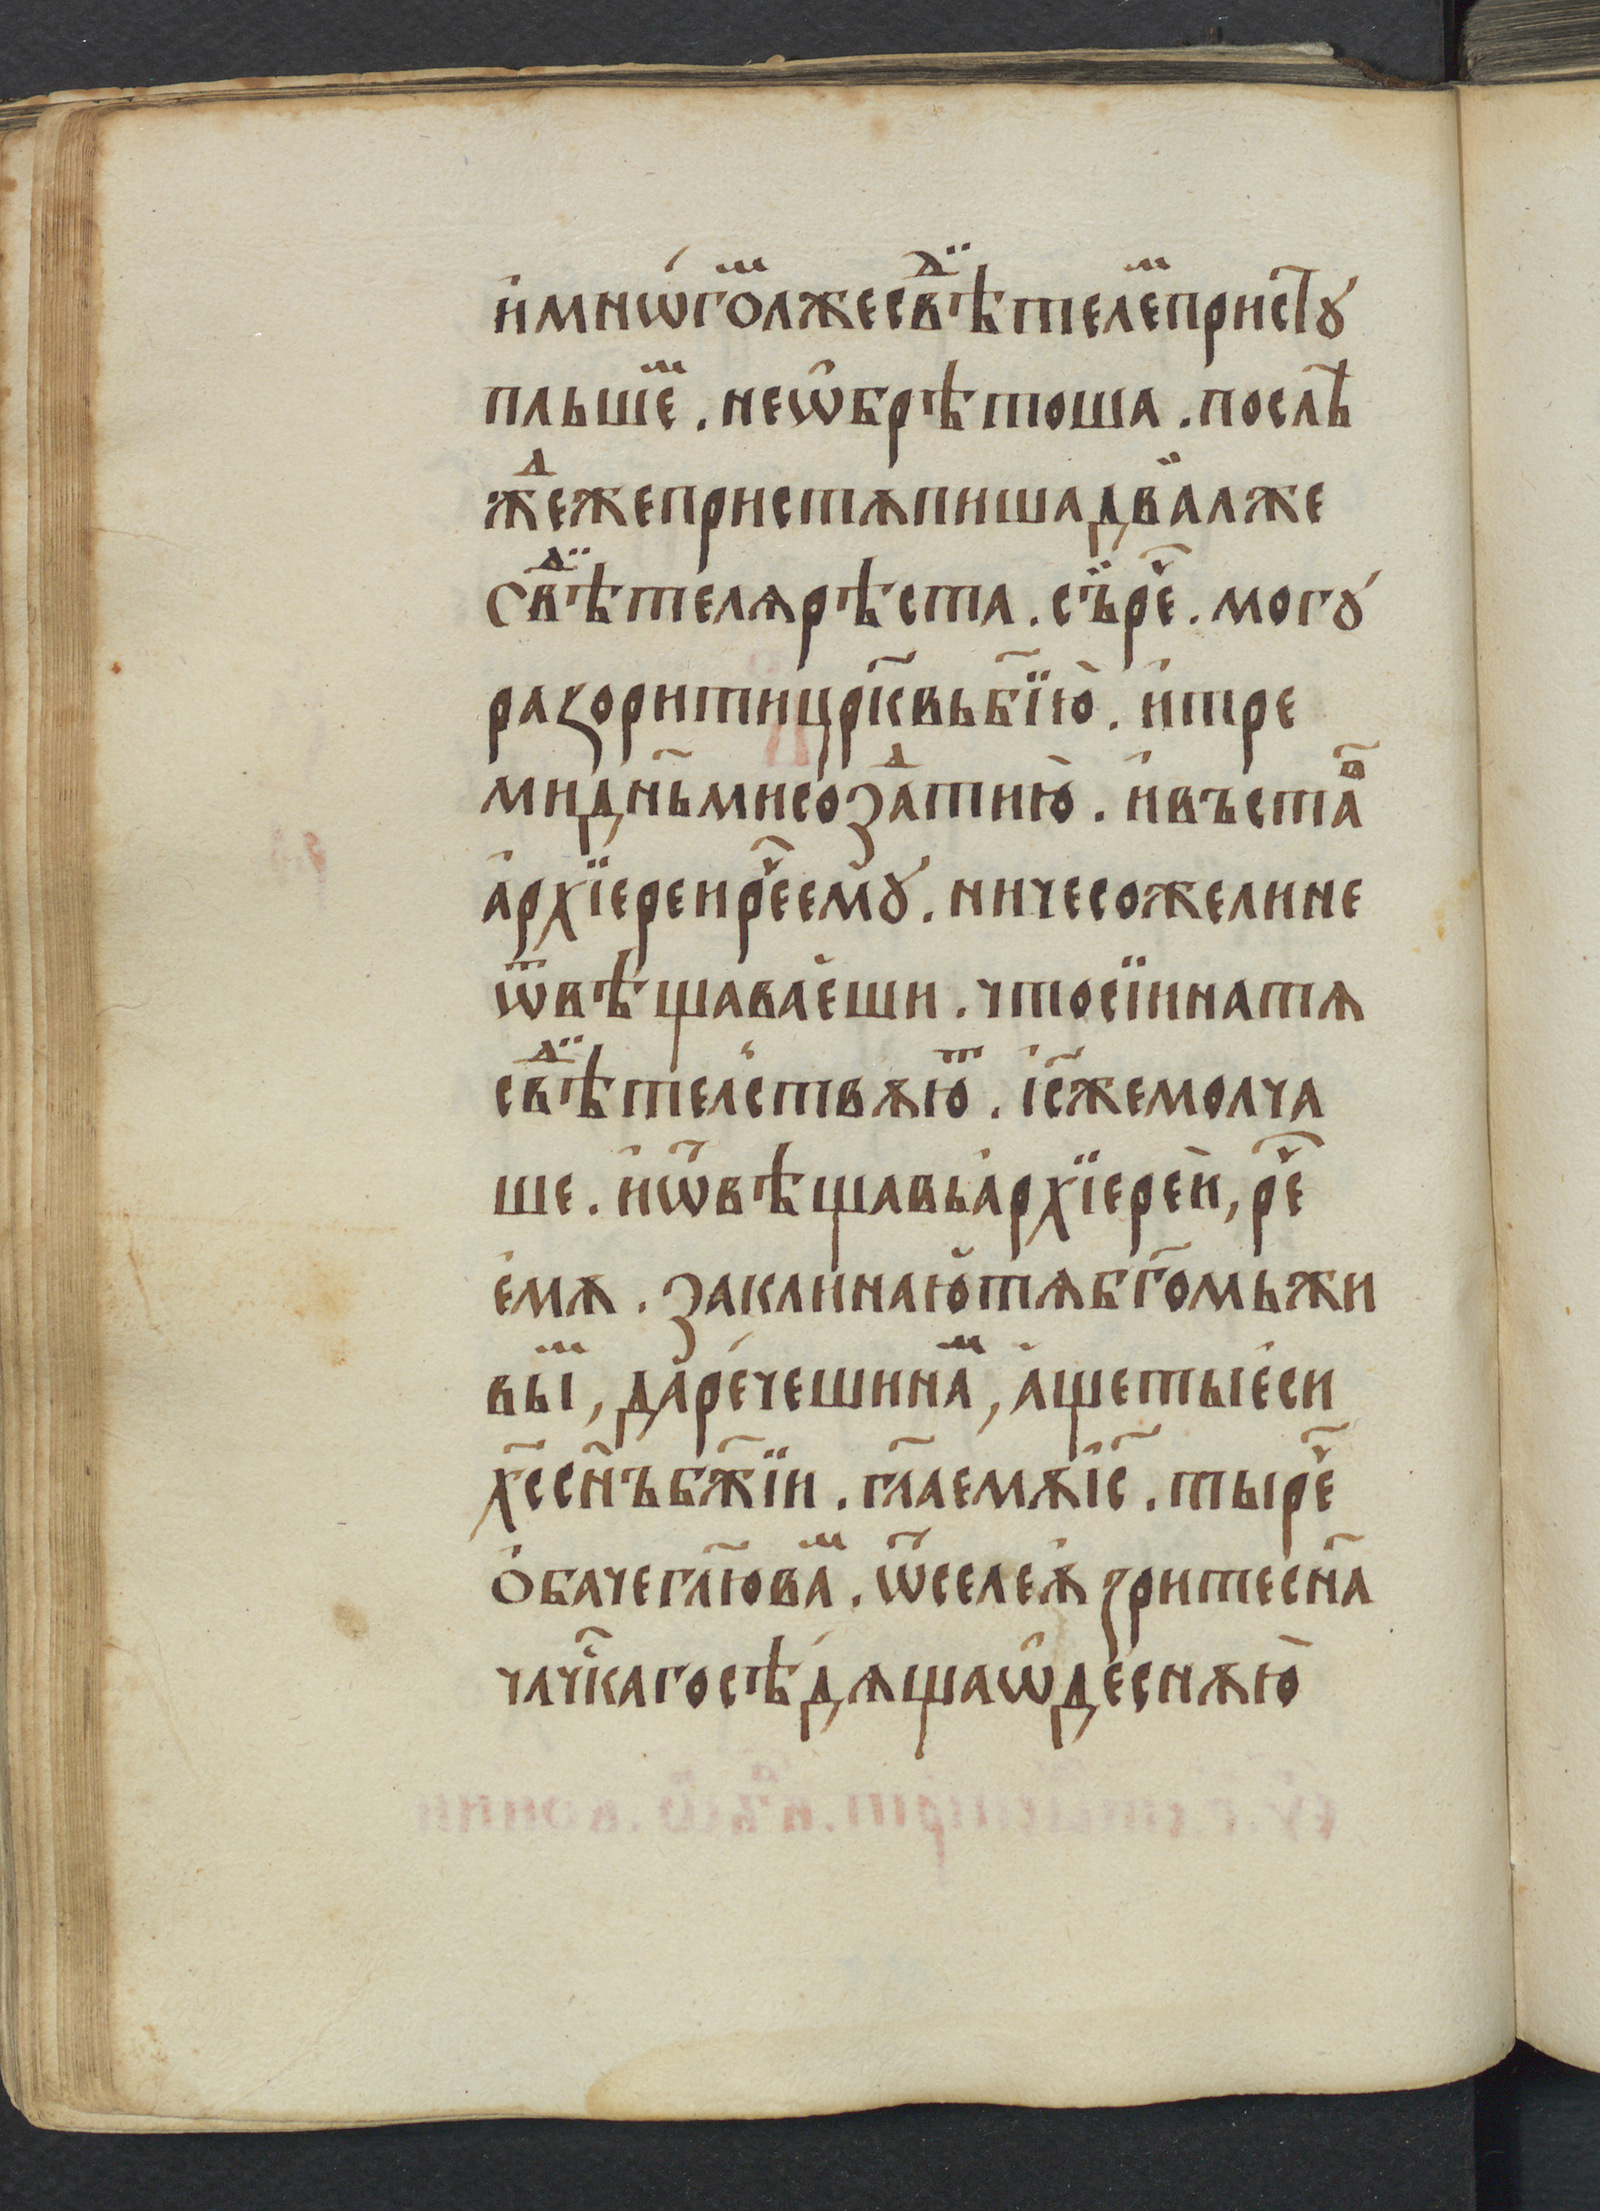 и҆мнѡ́гоⷨлжесвⷣѣ̈телеⷨпристꙋ
пльшїеⷨ. неѡ҆брѣтоша. послѣ
жⷣежепристѫпиша двӓлже
Свⷣѣ̈телярѣста. съ̈рѐ҇. могꙋ́
разоритицр҃квьбж҃їю̀. и҆тре
мидн҃ьмисоꙁаⷣтию̀. и҆въстаⷡ҇
а҆рхїереиреⷱ҇емꙋ̀. ничесожелине
ѿвѣщава́еши. чтосїинатѧ
свⷣѣ̈телс̾твѫюⷮ. і҆с҃жемолча
ше. и҆ѿвѣщавьа҆рхїере́и, реⷱ҇
е҆мѫ. ꙁаклина́ю тѧбг҃омьжи
выⷨ, да̀рече́шинаⷨ, а҆щетыѐси
х҃ссн҃ъбж҃їи. гл҃аемѫі҆с҃. тыреⷱ҇
Ѻ҆бачегл҃ювⷨа. ѿселеѫзритесн҃а
члч҃кагосѣдѧ́щаѡ҆десн́ѫю̀